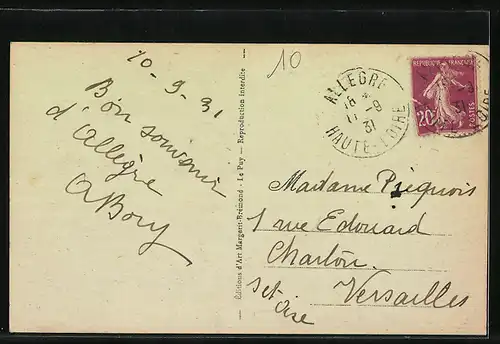 10-9-31
Bon souvenir
d'Allègre
ABory
Editions d'Art Margerit-Brémond - Le Puy — Reproduction Interdite
10
ALLEGRE
18 *
11 -9
31
HAUTE-LOIRE
REPUBLIQUE FRANÇAISE
20c
POSTES
31
LOIRE
Madame
1 rue Edouard
Charton
Versailles
Set
Oise